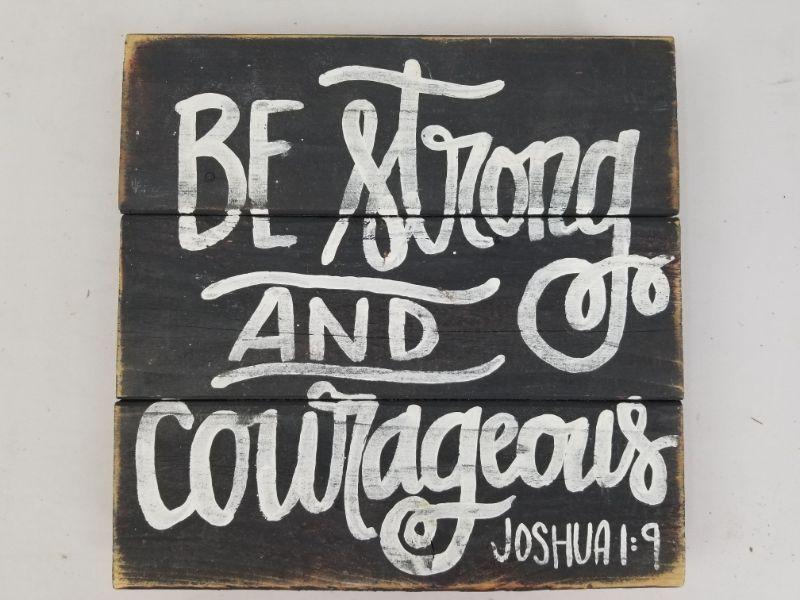 BE strong
AND
courageous
JOSHUA 1:9